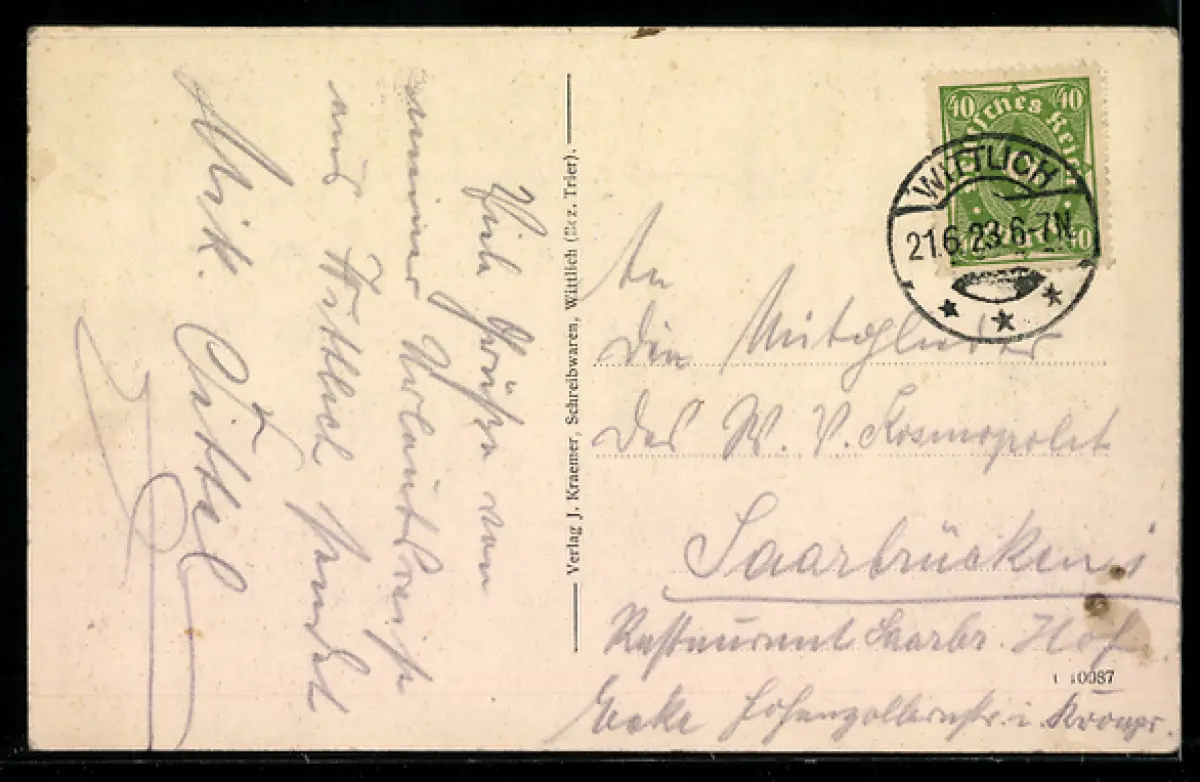 Viele Grüße von
meiner Urlaubsreise
aus Wittlich sendet
Nik. Gittel
Verlag J. Kraemer, Schreibwaren, Wittlich (Bez. Trier).
40 Deutsches Reich 40
40 40
WITTLICH
21.6.23.6-7N.
An
die Mitglieder
des W. V. Kosmopolit
Saarbrücken
Restaurant Saarbr. Hof
Ecke Hohenzollernstr. u. Kronpr.
10087